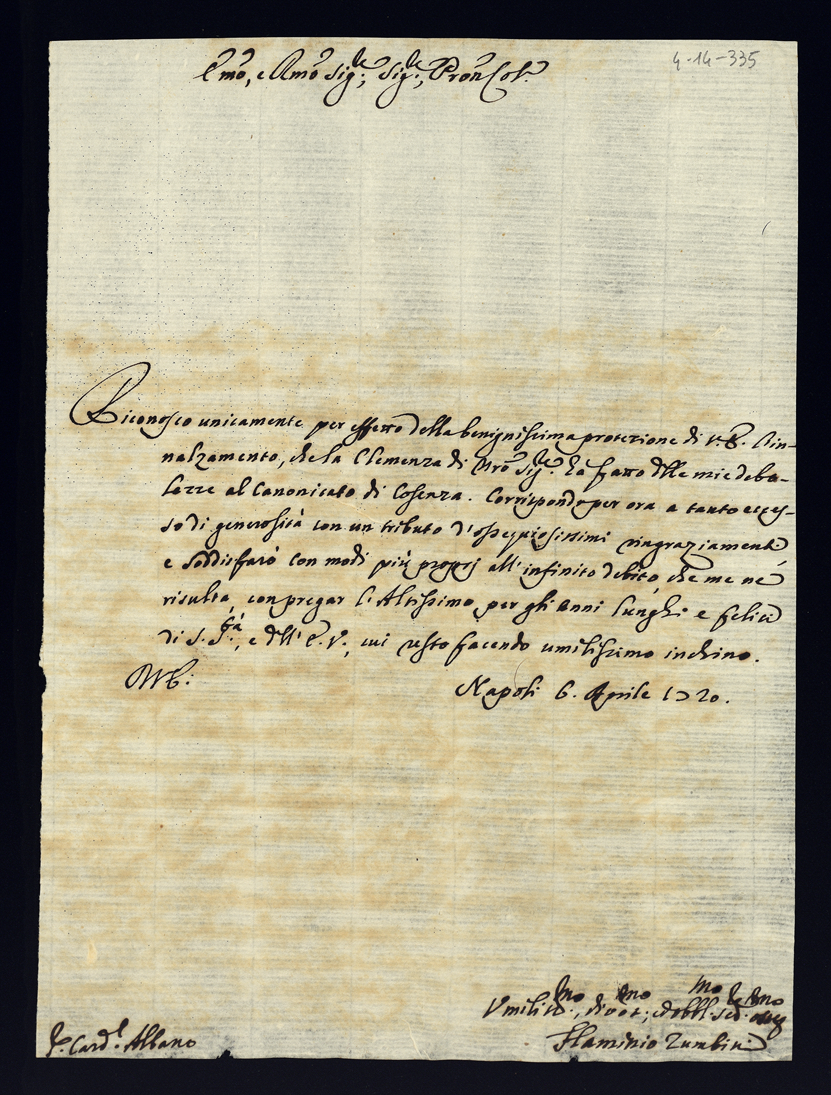 4-14-335
E.mo, e R.mo Sig.re, Sig.re, Pron Col.mo
Riconosco unicamente per effetto della benignissima protezione di V. E. l'in-
nalzamento, che la Clemenza di Nro Sig.re ha fatto dlle mie debo-
lezze al Canonicato di Cosenza. Corrispondo per ora a tanto ecces-
so di generosità con un tributo d'ossequiosissimi ringraziamenti
e soddisfarò con modi più proprj all'infinito debito, che me ne
risulta, con pregar l'Altissimo per gli anni lunghi e felici
di S. S.tà, e dll' E. V., cui resto facendo umilissimo inchino.
Napoli 6. Aprile 1720.
Umiliss.mo, divot.mo, ed obbl.mo ser.re
Flaminio Zumbini
Card.l Albano